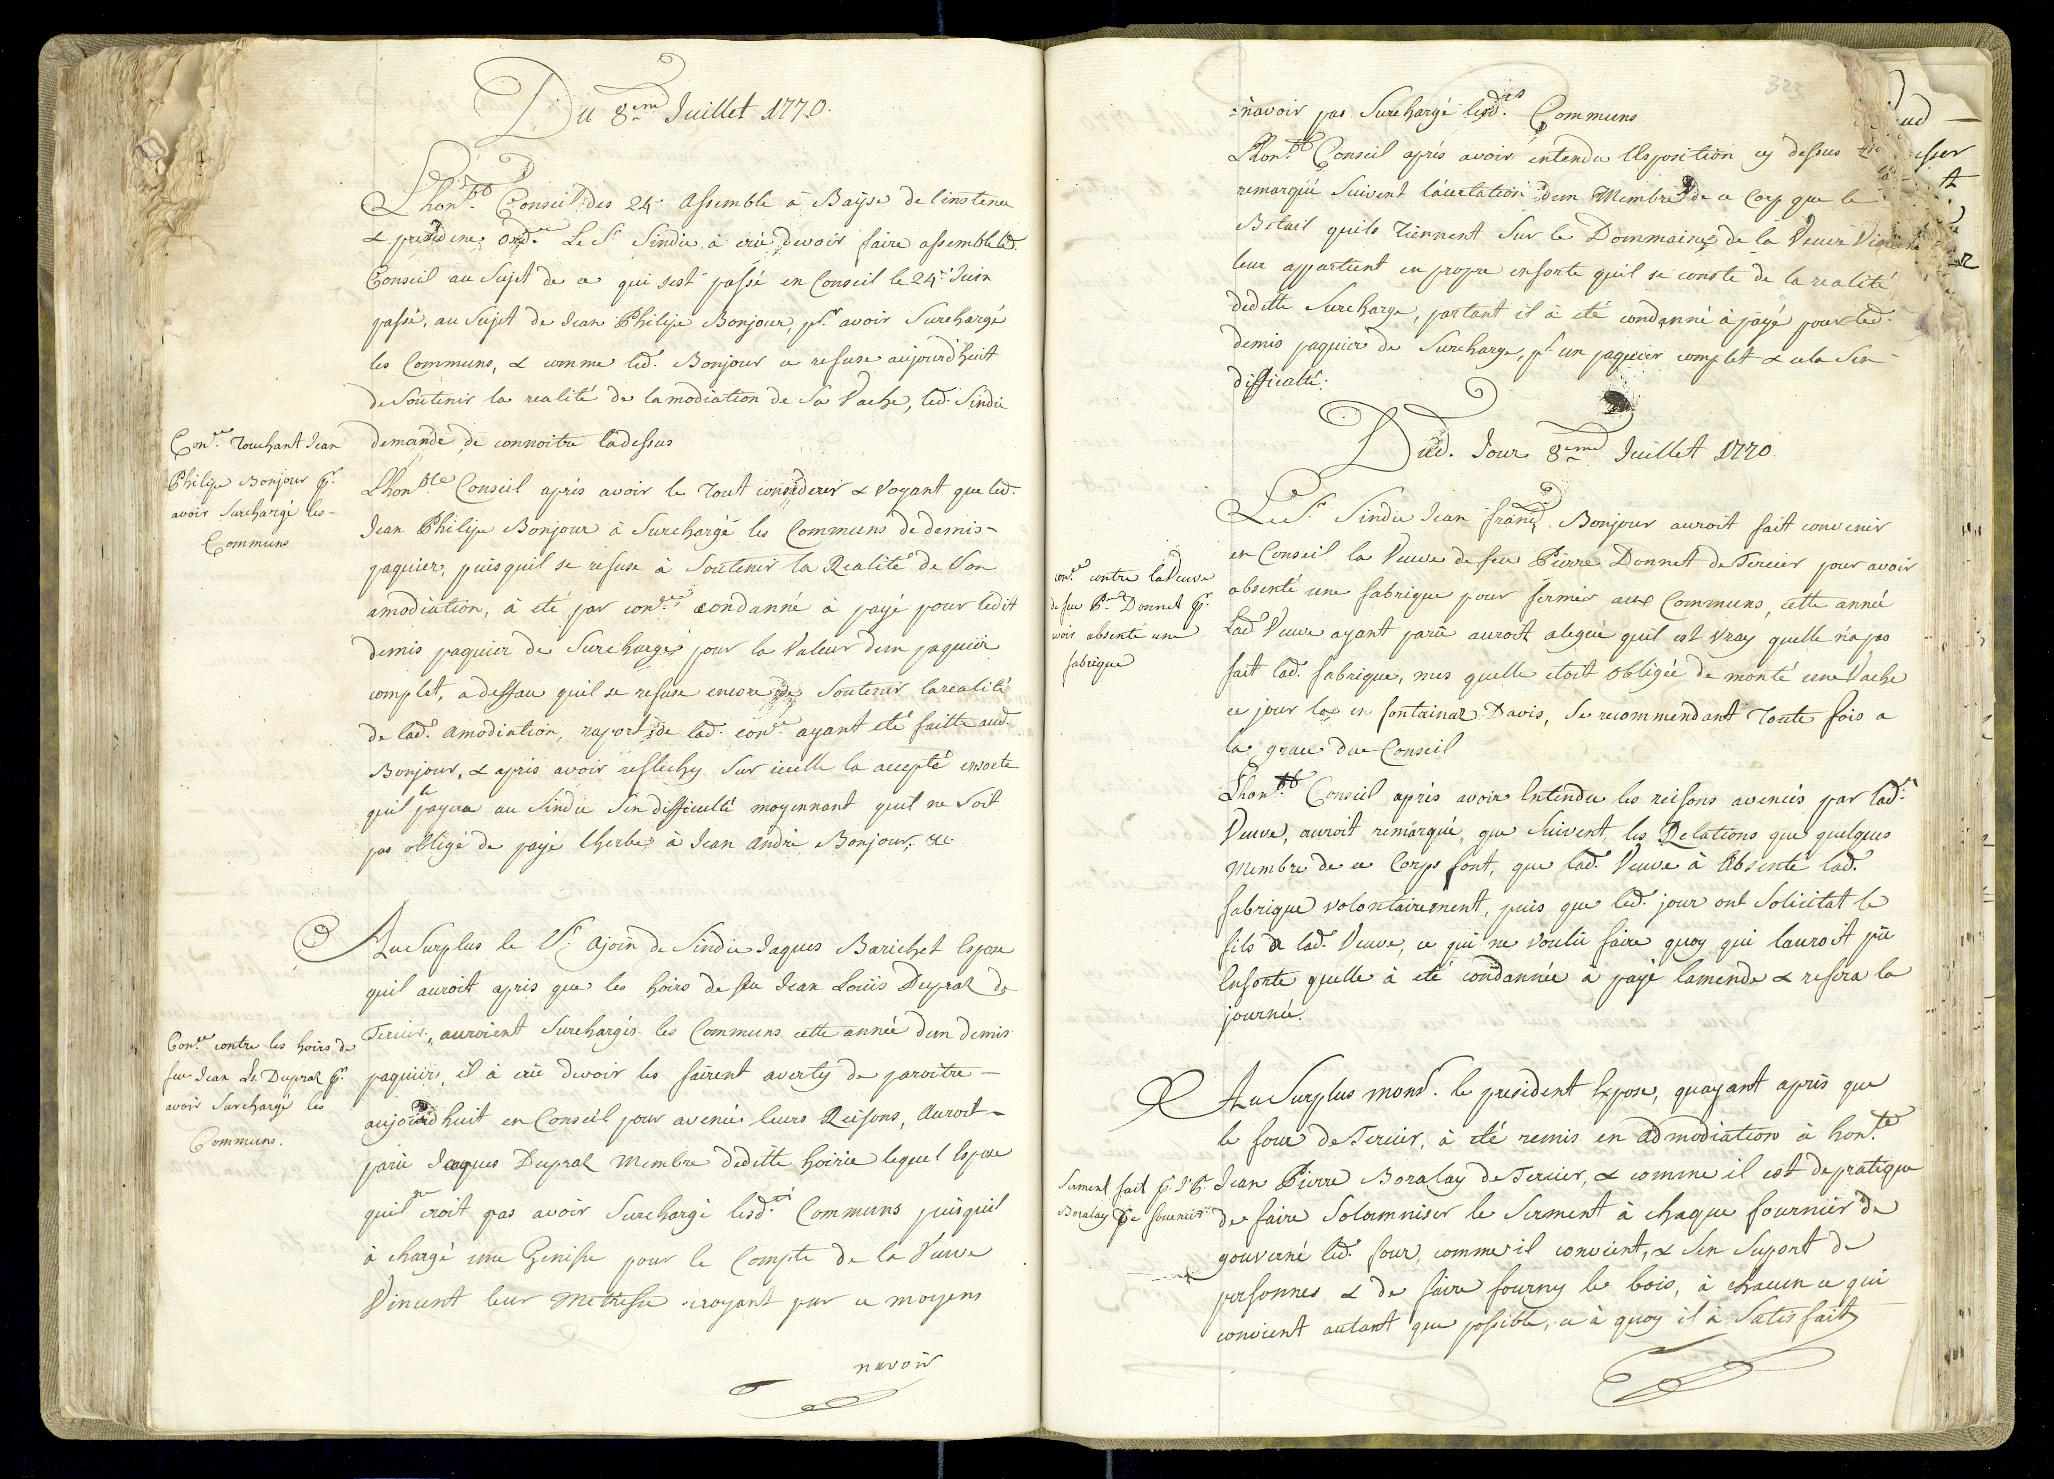 Du 8.eme Juillet 1770.
Lhon.ble Conseil des 24. Assemblé à Bayse de linstence
& presidence Ord.re Le Sr Sindic à crû devoir faire assemblé led.
Conseil au Sujet de ce qui sest passé en Conseil le 24.e Juin
passé, au Sujet de Jean Philipe Bonjour, pr. avoir Surchargé
les Communs, & comme led. Bonjour ce refuse aujourd'huit
de Soutenir la realité de lamodiation de Sa Vache, led. Sindic
demande de connoitre ladessus
Con.ce Touchant Jean
Philipe Bonjour pr.
avoir Surchargé les
Communs
Lhon.ble Conseil aprés avoir le Tout considerer & Voyant que led.
Jean Philipe Bonjour à Surchargé les Communs de demis
paquier, puisquil se refuse à Soutenir la Realité de Son
amodiation, à eté par con.ce condanné à payé pour ledit
demis paquier de Surcharge pour la Valeur dun paquier
complet, a deffau quil se refuse encore de Soutenir larealité
de lad. amodiation, raport de lad. con.ce ayant eté faitte aud.
Bonjour, & apris avoir reflechy Sur icelle la accepté ensorte
quil le payera au Sindic Sin difficulté moyennant quil ne Soit
pas obligé de payé lherbe à Jean André Bonjour. &c.
Au Surplus le Sr. ajoin de Sindic Jaques Barichet Expose
quil auroit apris que les hoirs de feu Jean Louïs Dupraz de
Tercier, auroient Surchargés les Communs cette année dun demis
paquier, il à crû devoir les fairent averty de paroitre
aujourdhuit en Conseil pour avencé leurs Reisons, Auroit
parû Jaques Dupraz Membre deditte hoirie lequel Expose
quil ne croit pas avoir Surchargé lesd.ts Communs puisquil
à chargé une Genisse pour le Compte de la Veuve
Vincent leur Metresse croyant par ce moyens
Con.ce contre les hoirs de
feu Jean Ls. Dupraz pr.
avoir Surchargé les
Communs.
navoir
323
=navoir pas Surchargé lesd.ts Communs
Lhon.ble Conseil aprés avoir entendu lExposition cy dessus
remarqué Suivent la'certation dun Membre de ce Corp que le
Betail quils Tiennent Sur le Dommaine de la Veuve
leur appartient en propre ensorte quil se conste de la realité
deditte Surcharge, partant il à eté condanné à payé pour led.
demis paquier de Surcharge, pr un paquier complet & cela Sin
difficulté.
Dud. Jour 8.eme Juillet 1770
Le Sr. Sindic Jean franç. Bonjour auroit fait convenir
en Conseil la Veuve de feu Pierre Donnet de Tercier pour avoir
absenté une fabrique pour fermer aux Communs, cette année
Lad. Veuve ayant parû auroit alegué quil est vray quelle n'a pas
fait lad. fabrique, mes quelle etoit obligée de monté une Vache
ce jour la en fontainaz Davis, Se recommendant Toute fois a
la grace du Conseil
con.ce contre la Veuve
de feu P.re Donnet pr.
avoir absenté une
fabrique
Lhon.ble Conseil aprés avoir Entendu les reisons avencés par lad.e
Veuve, auroit remarqué, que Suivent les Relations que quelques
Membre de ce Corps font, que lad. Veuve à Absenté lad.
fabrique volontairement, puis que led. jour ont Solicitat le
fils de lad. Veuve, ce qui ne voulû faire quoy qui lauroit pû
Ensorte quelle à eté condannée à payé lamende & refera la
journée.
Au Surplus mons.r le president Expose, quayant apris que
le four de Tercier, à eté remis en admodiation à hon.te
Jean Pierre Boralay de Tercier, & comme il est de pratique
de faire Solemniser le Serment à chaque fournier de
gouverné led. four, comme il convient, & Sin Suport de
personnes & de faire fourny le bois, à chacun ce qui
convient autant que possible, ce à quoy il à Satisfait
Serment fait pr J. P.
Boralay pr le fournier